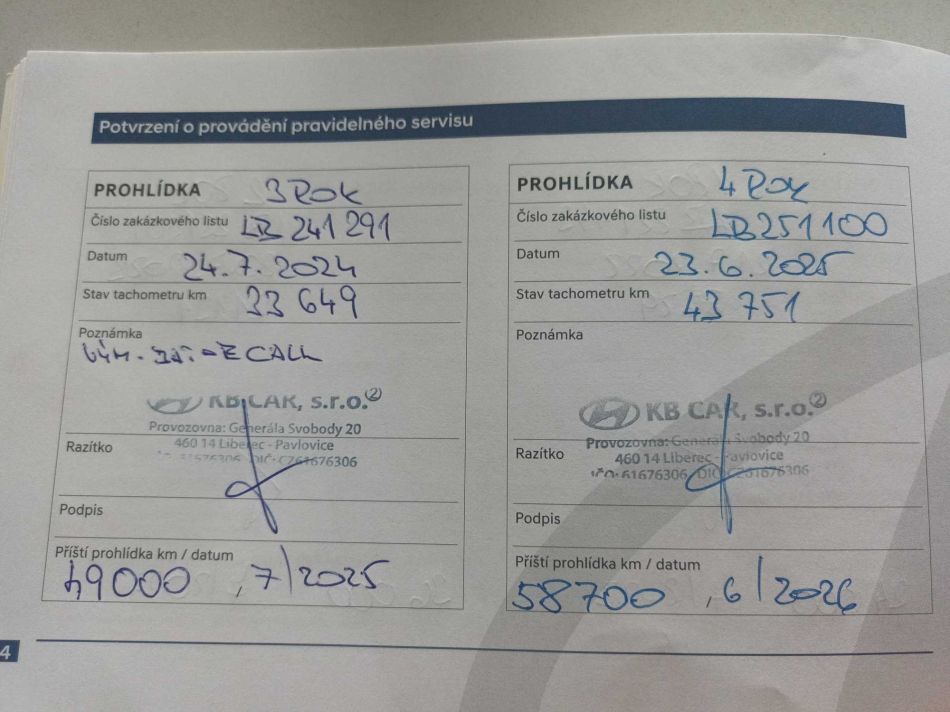 Potvrzení o provádění pravidelného servisu
PROHLÍDKA 3 ROK
Číslo zakázkového listu LB 241 291
Datum 24.7.2024
Stav tachometru km 33 649
Poznámka
VÝM. BAT. ECALL
KB CAR, s.r.o. 2
Provozovna: Generála Svobody 20
460 14 Liberec - Pavlovice
61676306 DIČ: CZ61676306
Razítko
Podpis
Příští prohlídka km / datum
49000, 7/2025
PROHLÍDKA 4 ROK
Číslo zakázkového listu LB251100
Datum 23.6.2025
Stav tachometru km 43 751
Poznámka
KB CAR, s.r.o. 2
Provozovna: Generála Svobody 20
460 14 Liberec - Pavlovice
IČO: 61676306, DIČ: CZ61676306
Razítko
Podpis
Příští prohlídka km / datum
58700, 6/2026
4